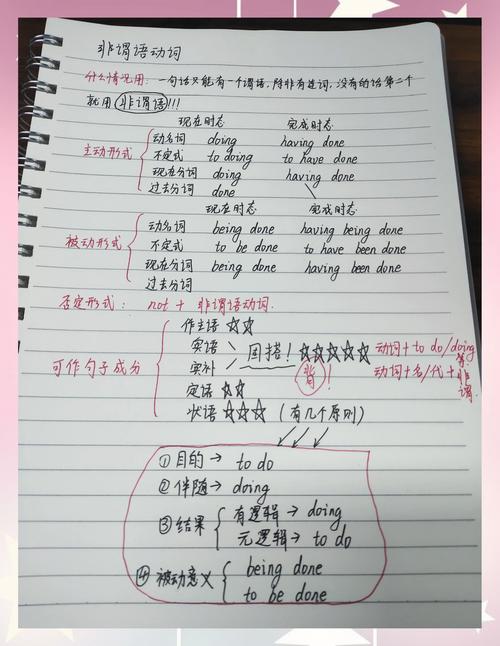 非谓语动词
什么情况用：一句话只能有一个谓语，除非有连词，没有的话第二个
就用非谓语!!!
现在时态 完成时态
主动形式
动名词 doing having done
不定式 to doing to have done
现在分词 doing having done
过去分词 done
现在时态 完成时态
被动形式
动名词 being done having being done
不定式 to be done to have been done
现在分词 being done having been done
过去分词
否定形式： not + 非谓语动词.
可作句子成分
作主语 ☆☆
宾语
宾补
固搭! ☆☆☆☆☆ 动词+ to do/doing
背! 动词+名/代+非谓
定语 ☆☆
状语 ☆☆☆ (有几个原则)
①目的→ to do
②伴随→ doing
③结果
有逻辑→ doing
无逻辑→ to do
④被动意义
being done
to be done